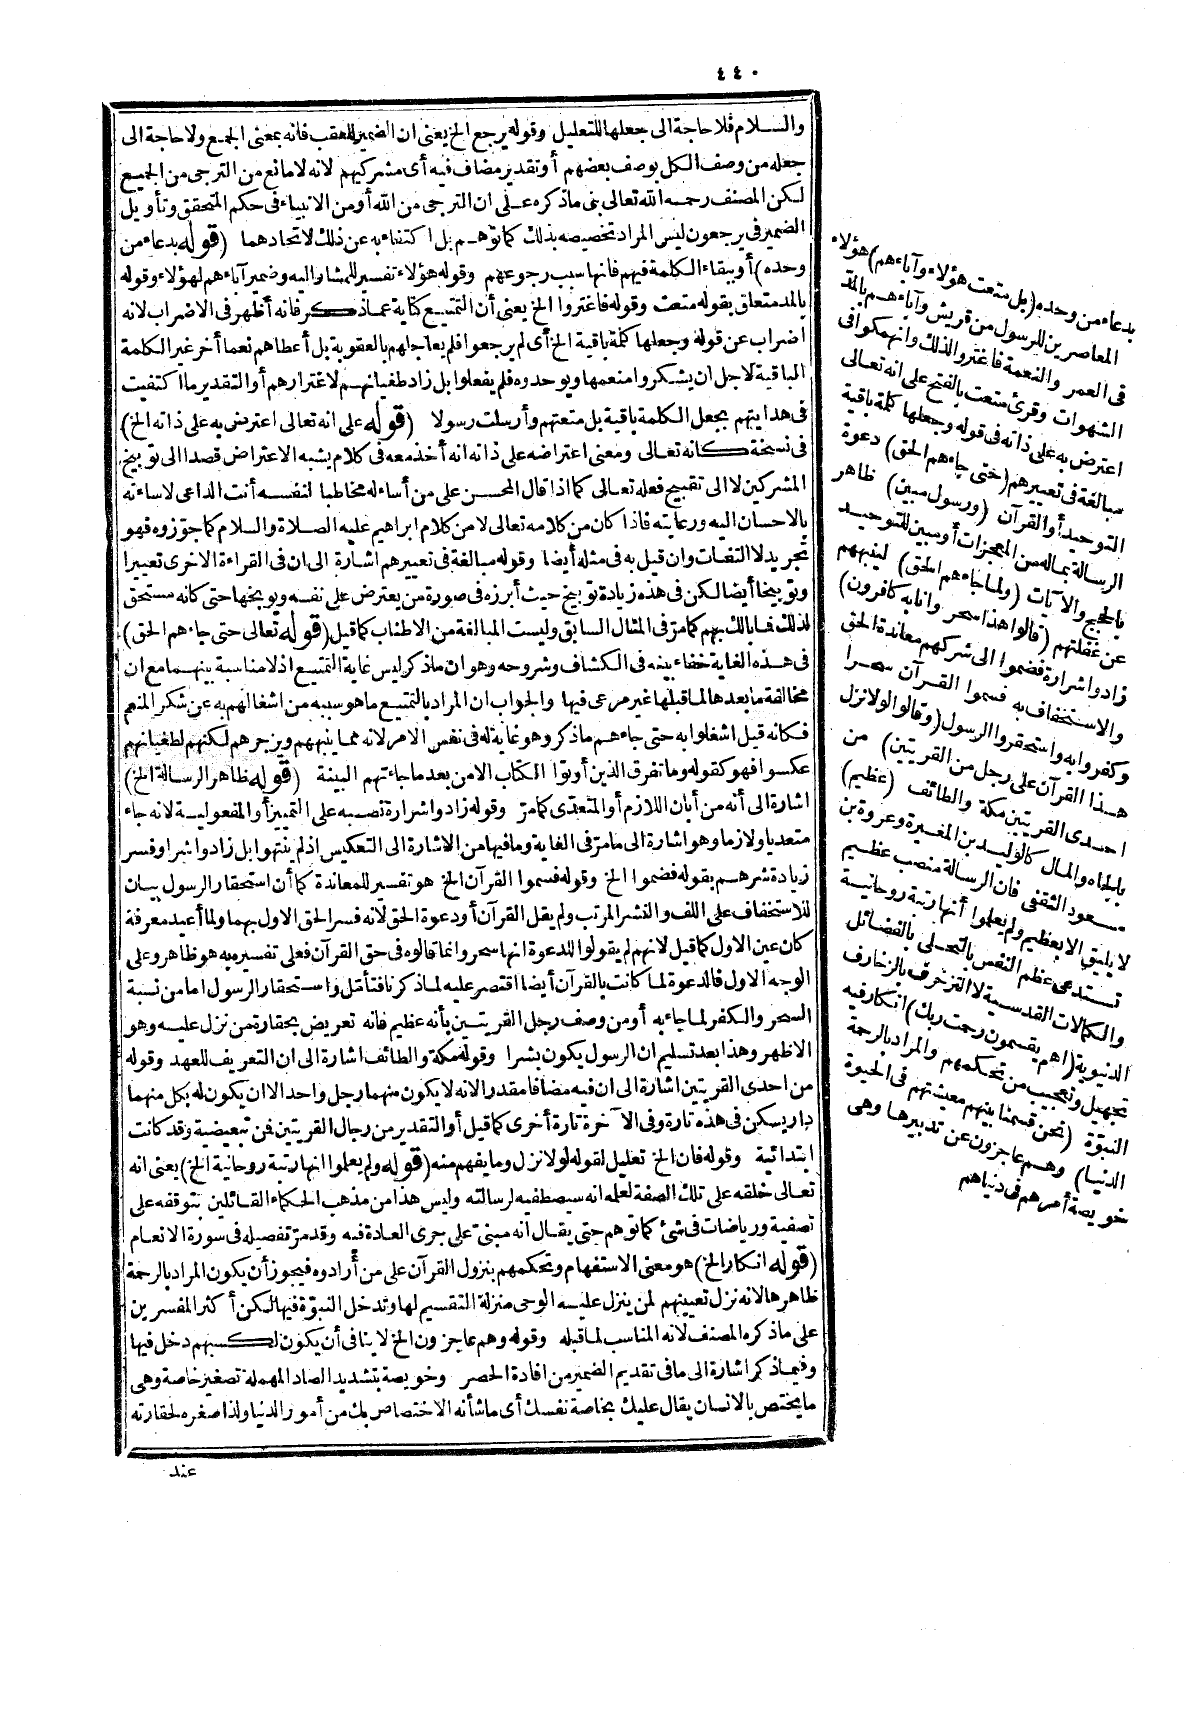 ٤٤٠
والسلام فلا حاجة الى جعلها للتعليل وقوله يرجع الخ يعنى ان الضمير للعقب فانه بمعنى الجمع ولا حاجة الى
جعله من وصف الكل بوصف بعضهم أو تقدير مضاف فيه أى مشركيهم لانه لا مانع من الترجى من الجميع
لكن المصنف رحمه الله تعالى بنى ماذكره على ان الترجى من الله أو من الانبياء فى حكم المتحقق وتأويل
الضمير فى يرجعون ليس المراد تخصيصه بذلك كما توهم بل اكتفاء به عن ذلك لاتحادهما (قوله بدعاء من
وحده) أو ببقاء الكلمة فيهم فانها سبب رجوعهم وقوله هؤلاء تفسير للمشار اليه وضمير آباءهم لهؤلاء وقوله
بالمد متعلق بقوله متعت وقوله فاغتروا الخ يعنى أن التمتيع كناية عماذكر فانه أظهر فى الاضراب لانه
اضراب عن قوله وجعلها كلمة باقية الخ أى لم يرجعوا فلم يعاجلهم بالعقوبة بل أعطاهم نعما أخر غير الكلمة
الباقية لاجل ان يشكروا منعمها ويوحدوه فلم يفعلوا بل زاد طغيانهم لاغترارهم أو التقدير ما اكتفيت
فى هدايتهم بجعل الكلمة باقية بل متعتهم وأرسلت رسولا (قوله على انه تعالى اعترض به على ذاته الخ)
فى نسخة كانه تعالى ومعنى اعتراضه على ذاته انه أخذ معه فى كلام يشبه الاعتراض قصدا الى توبيخ
المشركين لا الى تقبيح فعله تعالى كما اذا قال المحسن على من أساء له مخاطبا لنفسه أنت الداعى لاساءته
بالاحسان اليه ورعايته فاذا كان من كلامه تعالى لا من كلام ابراهيم عليه الصلاة والسلام كما جوزوه فهو
تجريد لا التفات وان قيل به فى مثله أيضا وقوله مبالغة فى تعييرهم اشارة الى ان فى القراءة الاخرى تعييرا
وتوبيخا أيضا لكن فى هذه زيادة توبيخ حيث أبرزه فى صورة من يعترض على نفسه ويوبخها حتى كانه مستحق
لذلك فما بالك بهم كما مر فى المثال السابق وليست المبالغة من الاطناب كما قيل (قوله تعالى حتى جاءهم الحق)
فى هذه الغاية خفاء بينه فى الكشاف وشروحه وهو ان ماذكر ليس غاية التمتيع اذ لا مناسبة بينهما مع ان
مخالفة ما بعدها لما قبلها غير مرعى فيها والجواب ان المراد بالتمتيع ما هو سببه من اشتغالهم به عن شكر المنعم
فكانه قيل اشتغلوا به حتى جاءهم ماذكر وهو غاية له فى نفس الامر لانه مما ينبههم ويزجرهم لكنهم لطغيانهم
عكسوا فهو كقوله وما تفرق الذين أوتوا الكتاب الا من بعد ما جاءتهم البينة (قوله ظاهر الرسالة الخ)
اشارة الى أنه من أبان اللازم أو المتعدى كما مر وقوله زادوا شرارة نصبه على التمييز أو المفعولية لانه جاء
متعديا ولازما وهو اشارة الى ما مر فى الغاية وما فيها من الاشارة الى التعكيس اذ لم ينتهوا بل زادوا شرا وفسر
زيادة شرهم بقوله فضموا الخ وقوله فسموا القرآن الخ هو تفسير للمعاندة كما أن استحقار الرسول بيان
للاستخفاف على اللف والنشر المرتب ولم يقل القرآن أو دعوة الحق لانه فسر الحق الاول بهما ولما أعيد معرفة
كان عين الاول كما قيل لانهم لم يقولوا للدعوة انها سحر وانما قالوه فى حق القرآن فعلى تفسيره به هو ظاهر وعلى
الوجه الاول فالدعوة لما كانت بالقرآن أيضا اقتصر عليه لماذكرنا فتأمل واستحقار الرسول اما من نسبة
السحر والكفر لما جاء به أو من وصف رجل القريتين بأنه عظيم فانه تعريض بحقارة من نزل عليه وهو
الاظهر وهذا بعد تسليم ان الرسول يكون بشرا وقوله مكة والطائف اشارة الى ان التعريف للعهد وقوله
من احدى القريتين اشارة الى ان فيه مضافا مقدرا لانه لا يكون منهما رجل واحد الا ان يكون له بكل منهما
دار يسكن فى هذه تارة وفى الآخرة تارة أخرى كما قيل أو التقدير من رجال القريتين فمن تبعيضية وقد كانت
ابتدائية وقوله فان الخ تعليل لقوله لولا نزل وما يفهم منه (قوله ولم يعلموا انها رتبة روحانية الخ) يعنى انه
تعالى خلقه على تلك الصفة لعلمه انه سيصطفيه لرسالته وليس هذا من مذهب الحكماء القائلين بتوقفه على
تصفية ورياضات فى شئ كما توهم حتى يقال انه مبنى على جرى العادة فيه وقد مر تفصيله فى سورة الانعام
(قوله انكار الخ) هو معنى الاستفهام وتحكمهم بنزول القرآن على من أرادوه فيجوز أن يكون المراد بالرحمة
ظاهرها لانه نزل تعيينهم لمن ينزل عليه الوحى منزلة التقسيم لها وتدخل النبوة فيها لكن أكثر المفسرين
على ماذكره المصنف لانه المناسب لما قبله وقوله وهم عاجزون الخ لا ينافى أن يكون لكسبهم دخل فيها
وفيماذكر اشارة الى ما فى تقديم الضمير من افادة الحصر وخويصة بتشديد الصاد المهملة تصغير خاصة وهى
ما يختص بالانسان يقال عليك بخاصة نفسك أى ما شأنه الاختصاص بك من أمور الدنيا ولذا صغره لحقارته
عند
بدعاء من وحده (بل متعت هؤلاء وآباءهم) هؤلاء
المعاصرين للرسول من قريش وآباءهم بالمد
فى العمر والنعمة فاغتروا لذلك وانهمكوا فى
الشهوات وقرئ متعت بالفتح على انه تعالى
اعترض به على ذاته فى قوله وجعلها كلمة باقية
مبالغة فى تعييرهم (حتى جاءهم الحق) دعوة
التوحيد أو القرآن (ورسول مبين) ظاهر
الرسالة بماله من المعجزات أو مبين للتوحيد
بالحجج والآيات (ولما جاءهم الحق) لينبههم
عن غفلتهم (قالوا هذا سحر وانا به كافرون)
زادوا شرارة فضموا الى شركهم معاندة الحق
والاستخفاف به فسموا القرآن سحرا
وكفروا به واستحقروا الرسول (وقالوا لولا نزل
هذا القرآن على رجل من القريتين) من
احدى القريتين مكة والطائف (عظيم)
بالجاه والمال كالوليد بن المغيرة وعروة بن
مسعود الثقفى فان الرسالة منصب عظيم
لا يليق الا بعظيم ولم يعلموا أنها رتبة روحانية
تستدعى عظم النفس بالتحلى بالفضائل
والكمالات القدسية لا التزخرف بالزخارف
الدنيوية (اهم يقسمون رحمت ربك) انكار فيه
تجهيل وتعجيب من تحكمهم والمراد بالرحمة
النبوة (نحن قسمنا بينهم معيشتهم فى الحيوة
الدنيا) وهم عاجزون عن تدبيرها وهى
خويصة أمرهم فى دنياهم